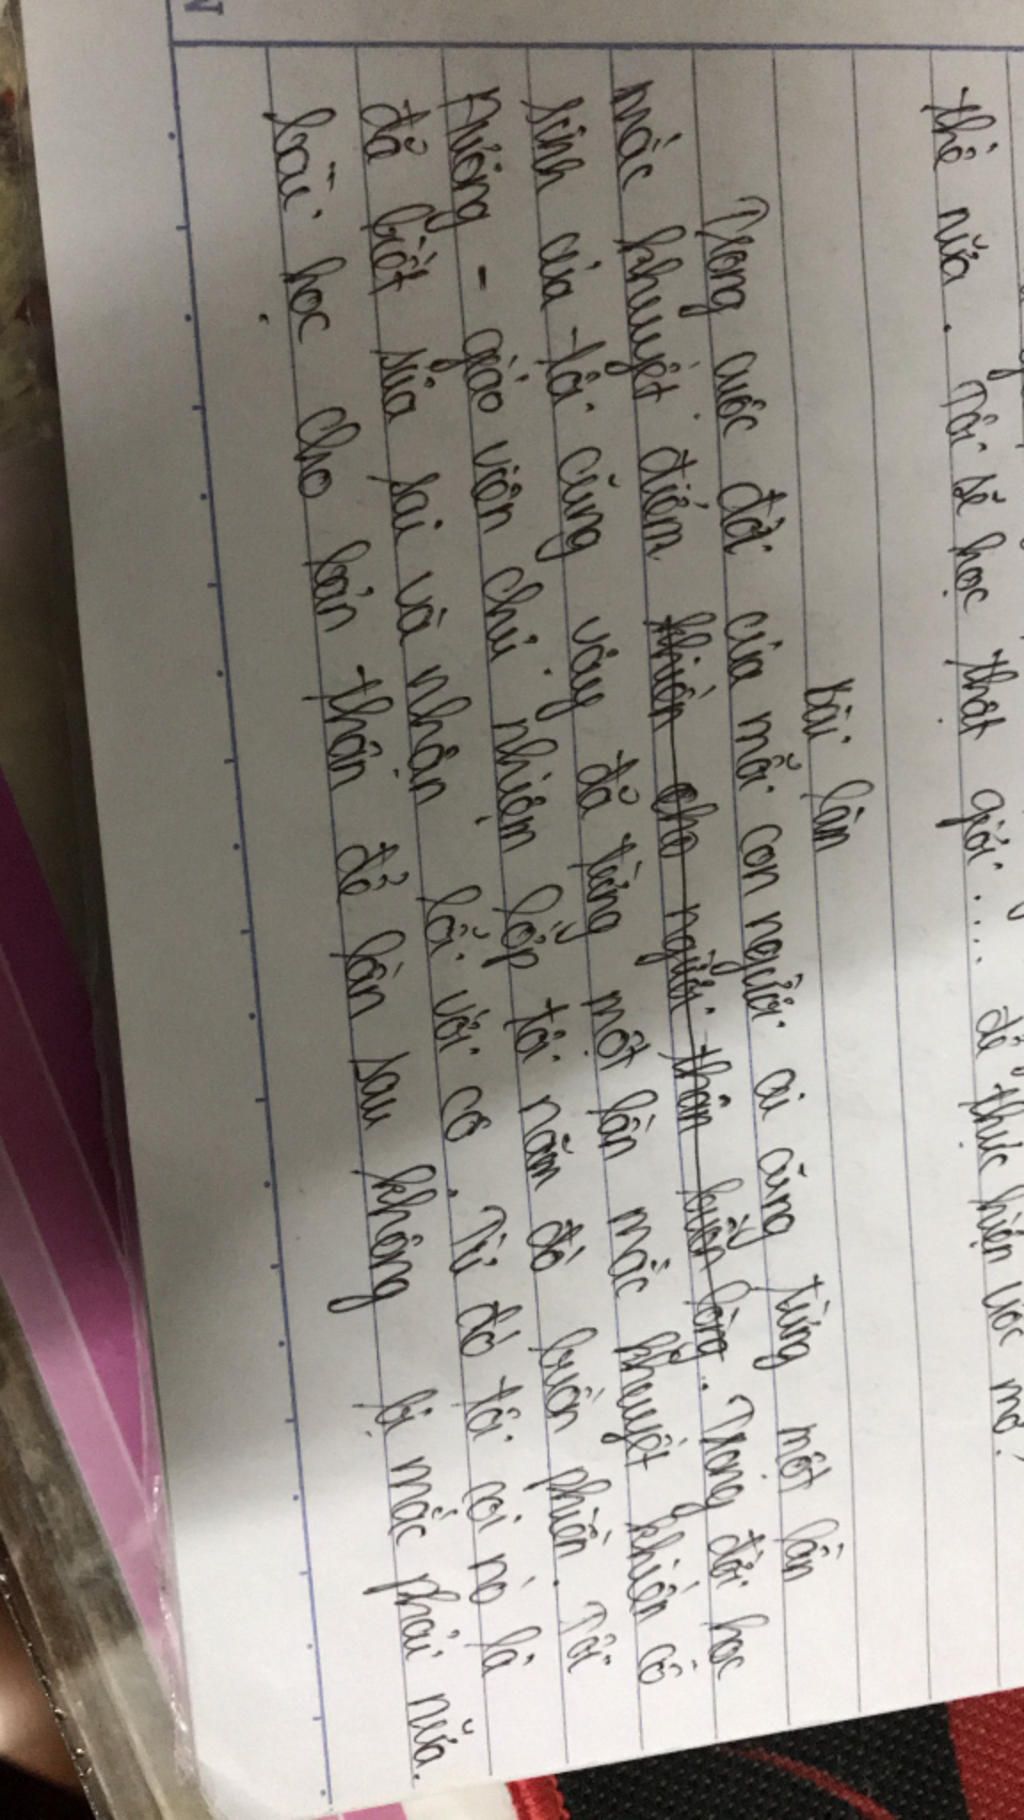 thế nữa. Tôi sẽ học thật giỏi.... để thực hiện ước mơ.
Bài làm
Trong cuộc đời của mỗi con người ai cũng từng một lần
mắc khuyết điểm khiến cho người thân buồn lòng. Trong đời học
sinh của tôi cũng vậy đã từng một lần mắc khuyết khiến cô
Hương - giáo viên chủ nhiệm lớp tôi năm đó buồn phiền. Tôi
đã biết sửa sai và nhận lỗi với cô. Từ đó tôi coi nó là
bài học cho bản thân để lần sau không bị mắc phải nữa.